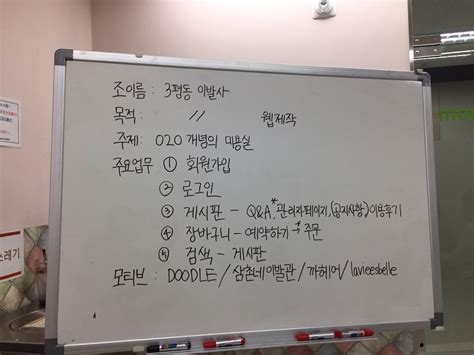 조이름 : 3평동 이발사
목적 : 〃 웹제작
주제 : O2O 개념의 미용실
주요업무 ① 회원가입
② 로그인
③ 게시판 - Q&A, *관리자페이지, (공지사항), 이용후기
④ 장바구니 - 예약하기 → 주문
⑤ 검색 - 게시판
모티브 : DOODLE / 삼촌네이발관 / 까헤어 / lavieesbelle
쓰레기